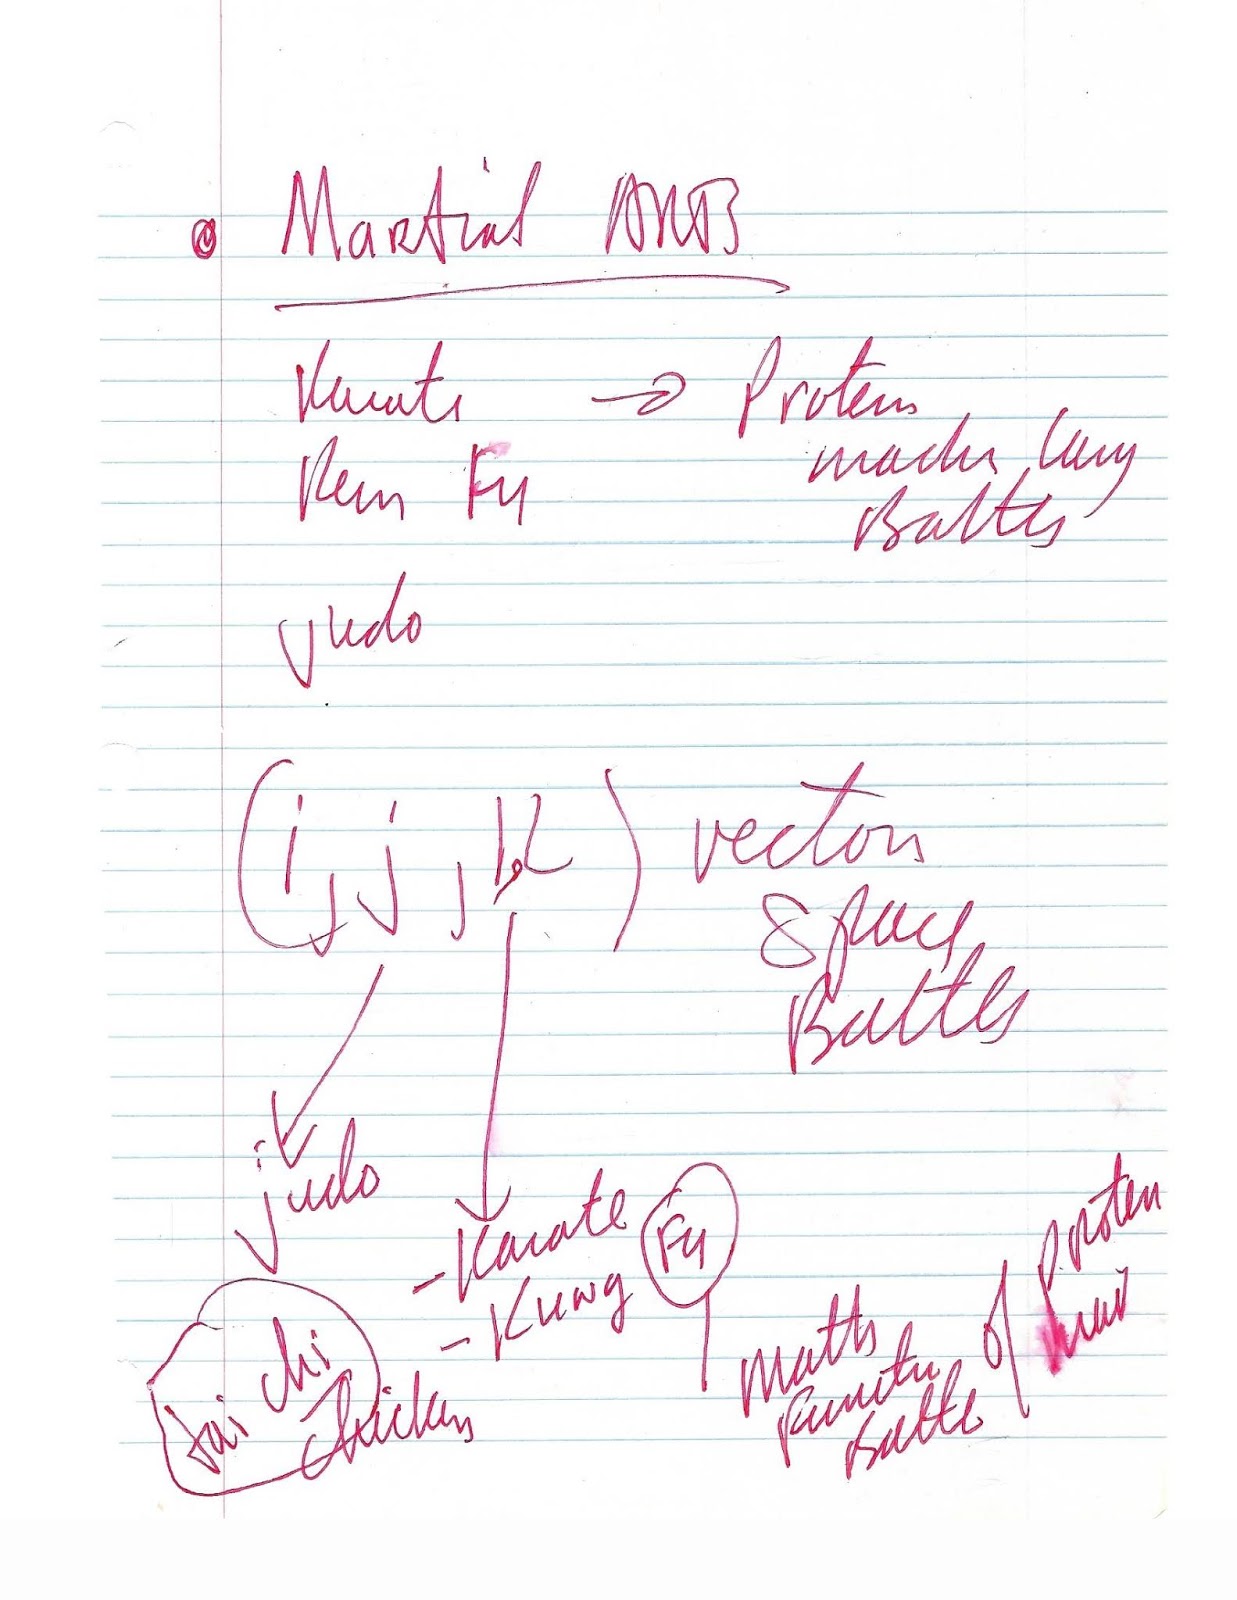 Martial Arts
Karate → Protein
machinery
Kun Fu Battles
Judo
(i, j, k) vector
Space
Battles
judo
- Karate
- Kung Fu
Tai Chi
Chicken
Maths
Function
Battle
of Protein